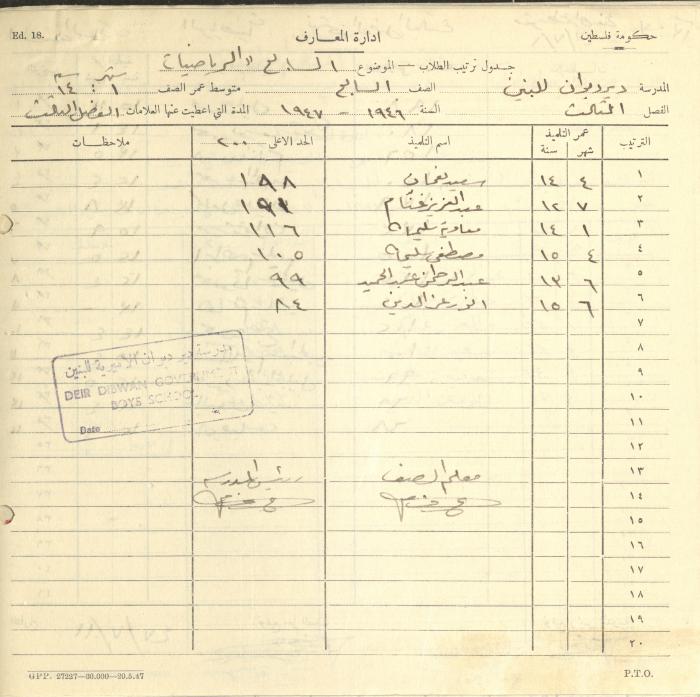 Ed. 18. ادارة المعارف حكومة فلسطين
جدول ترتيب الطلاب — الموضوع السابع "الرياضيات"
المدرسة ديرديوان للبنين الصف السابع متوسط عمر الصف ١ شهر ١٤ سنة
الفصل الثالث السنة ١٩٤٦ - ١٩٤٧ المدة التي اعطيت عنها العلامات الفصل الثالث
الترتيب عمر التلميذ شهر سنة اسم التلميذ الحد الاعلى ٢٠٠ ملاحظات
١ ٤ ١٤ سعيد نعمان ١٩٨
٢ ٧ ١٢ عبد العزيز غنام ١٩٢
٣ ١ ١٤ معاوية سليمان ١١٦
٤ ٤ ١٥ مصطفى سليمان ١٠٥
٥ ٦ ١٣ عبد الرحمن عبد الحميد ٩٩
٦ ٦ ١٥ انور عز الدين ٨٤
٧
٨
٩
١٠
١١
١٢
١٣
١٤
١٥
١٦
١٧
١٨
١٩
٢٠
مدرسة دير ديوان الأميرية للبنين
DEIR DIBWAN GOVERNMENT
BOYS SCHOOL
Date
معلم الصف رئيس المدرسة
GPP. 27227—30.000—20.5.47 P.T.O.